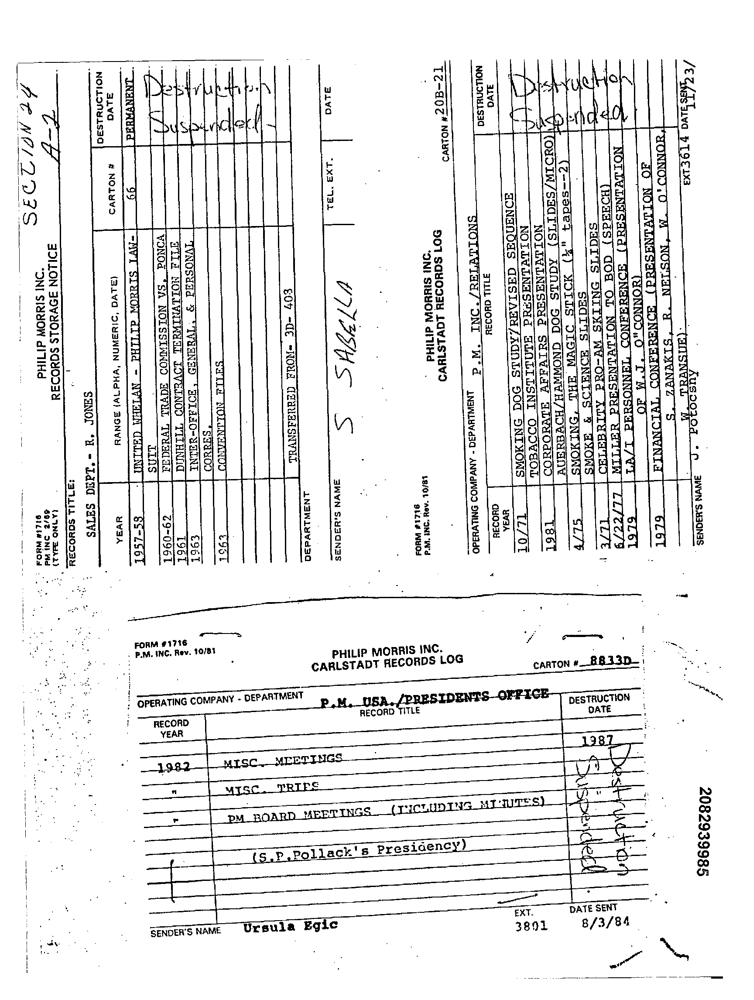 SECTION 24
A-2
FORM #1716
PM INC 2/69
(TYPE ONLY)
PHILIP MORRIS INC.
RECORDS STORAGE NOTICE
RECORDS TITLE:
SALES DEPT.- R. JONES
YEAR RANGE (ALPHA, NUMERIC, DATE) CARTON # DESTRUCTION DATE
1957-58 UNITED WHELAN - PHILIP MORRIS LAW- 66 PERMANENT
SUIT
1960-62 FEDERAL TRADE COMMISSION VS. PONCA
1961 DUNHILL CONTRACT TERMINATION FILE
1963 INTER-OFFICE, GENERAL, & PERSONAL
CORRES.
1963 CONVENTION FILES
Destruction
Suspended
TRANSFERRED FROM- 3D- 403
DEPARTMENT
SENDER'S NAME S SABELLA TEL. EXT. DATE
FORM #1716
P.M. INC. Rev. 10/81
PHILIP MORRIS INC.
CARLSTADT RECORDS LOG
CARTON # 20B-21
OPERATING COMPANY - DEPARTMENT P.M. INC./RELATIONS
RECORD YEAR RECORD TITLE DESTRUCTION DATE
10/71 SMOKING DOG STUDY/REVISED SEQUENCE
TOBACCO INSTITUTE PRESENTATION
1981 CORPORATE AFFAIRS PRESENTATION
AUERBACH/HAMMOND DOG STUDY (SLIDES/MICRO)
4/75 SMOKING, THE MAGIC STICK (¼" tapes--2)
SMOKE & SCIENCE SLIDES
3/71 CELEBRITY PRO-AM SKIING SLIDES
6/22/77 MILLER PRESENTATION TO BOD (SPEECH)
1979 LA/I PERSONNEL CONFERENCE (PRESENTATION
OF W.J. O"CONNOR)
1979 FINANCIAL CONFERENCE (PRESENTATION OF
S. ZANAKIS, R. NELSON, W. O'CONNOR,
W. TRANSUE)
Destruction
Suspended
SENDER'S NAME J. Potocsny EXT 3614 DATE SENT 11/23/
FORM #1716
P.M. INC. Rev. 10/81
PHILIP MORRIS INC.
CARLSTADT RECORDS LOG
CARTON # 8833D
OPERATING COMPANY - DEPARTMENT P.M. USA./PRESIDENTS OFFICE
RECORD YEAR RECORD TITLE DESTRUCTION DATE
1987
1982 MISC. MEETINGS
" MISC. TRIPS
" PM BOARD MEETINGS (INCLUDING MINUTES)
(S.P.Pollack's Presidency)
Destruction
Suspended
SENDER'S NAME Ursula Egic EXT. 3801 DATE SENT 8/3/84
2082939985